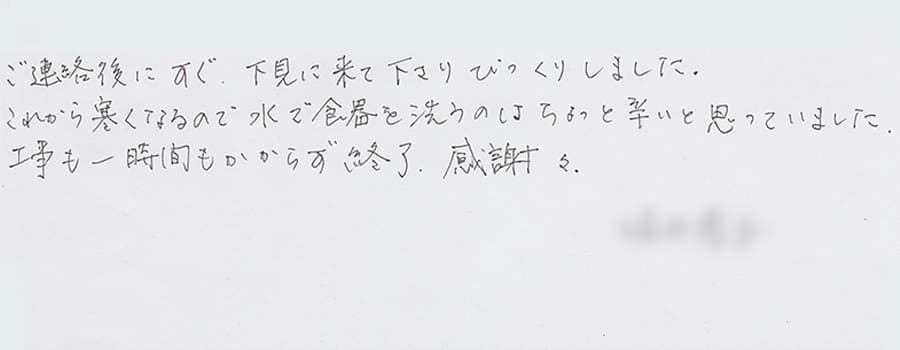 ご連絡後にすぐ、下見に来て下さりびっくりしました。
これから寒くなるので水で食器を洗うのはちょっと辛いと思っていました。
工事も一時間もかからず終了。感謝々。